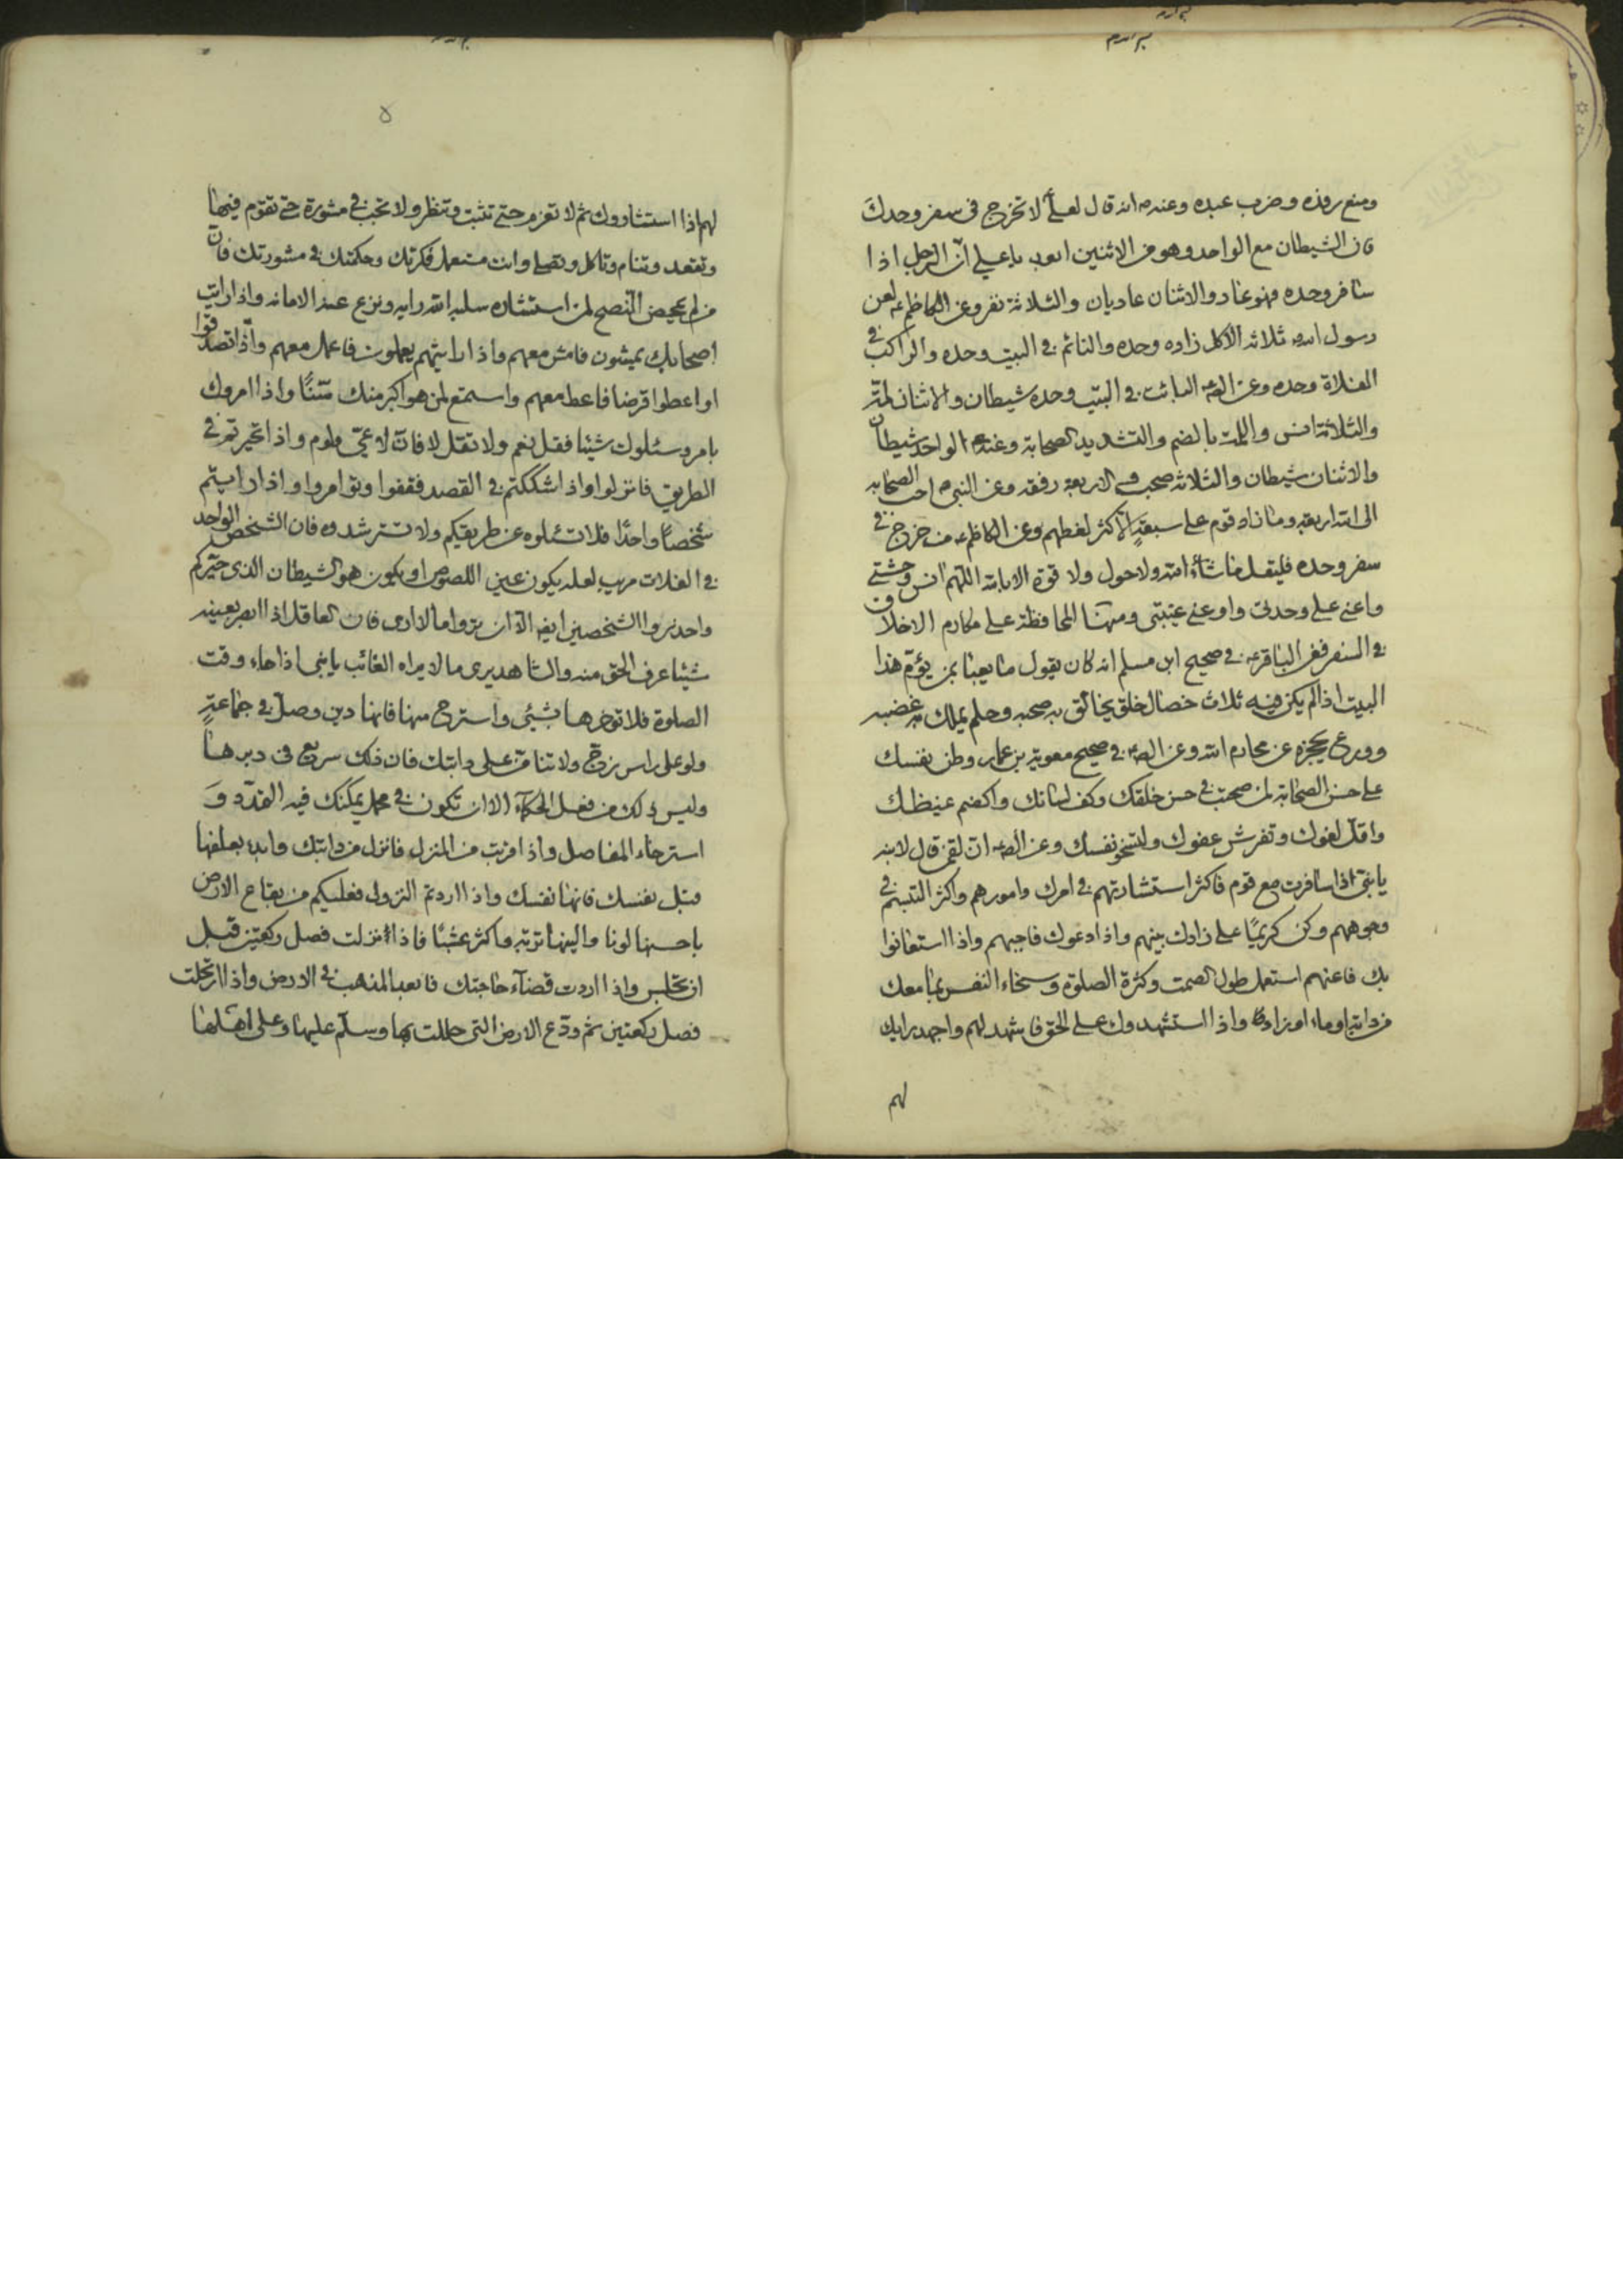 ومنع رفده وضرب عبده وعنه ص انه قال لعلى لا تخرج فى سفر وحدك
فان الشيطان مع الواحد وهو من الاثنين ابعد يا على ان الرجل اذا
سافر وحده فهو غاد والاثنان غاديان والثلاثة نفر وعن الكاظم ع لعن
رسول الله ثلاثه الاكل زاده وحده والنائم فى البيت وحده والراكب فى
الفلاة وحده وعن البائت فى البيت وحده شيطان والاثنان لمة
والثلاثة انس واللمة بالضم والتشديد الصحابة وعنه ص الواحد شيطان
والاثنان شيطان والثلاثه صحب والاربعة رفقه وعن النبى ص احب الصحابه
الى الله اربعة وما زاد قوم على سبعة الا كثر لغطهم وعن الكاظم ع من خرج فى
سفر وحده فليقل ما شاء الله ولا حول ولا قوة الا بالله اللهم انس وحشتى
واعنى على وحدتى واد غيبتى ومنها المحافظة على مكارم الاخلاق
فى السفر فعن الباقر ع فى صحيح ابن مسلم انه كان يقول ما يعبأ بمن يؤم هذا
البيت اذا لم يكن فيه ثلاث خصال خلق يخالق به صحبه وحلم يملك به غضبه
وورع يحجزه عن محارم الله وعن الص ع فى صحيح معوية بن عمار وطن نفسك
على حسن الصحابة لمن صحبت فى حسن خلقك وكف لسانك واكضم غيظك
واقل لغوك وتفرش عفوك ولتسخو نفسك وعن الص ع ان لقمن قال لابنه
يا بنى اذا سافرت مع قوم فاكثر استشارتهم فى امرك وامورهم واكثر التبسم فى
وجوههم وكن كريما على زادك بينهم واذا دعوك فاجبهم واذا استعانوا
بك فاعنهم استعمل طول الصمت وكثرة الصلوة وسخاء النفس بما معك
من دابة او ماء او زاد واذا استشهدوك على الحق فاشهد لهم واجهد رايك
لهم
٥
لهم اذا استشاروك ثم لا تعزم حتى تثبت وتنظر ولا تجب فى مشورة حتى تقوم فيها
وتقعد وتنام وتاكل وتصلى وانت مستعمل فكرتك وحكمتك فى مشورتك فان
من لم يمحض النصح لمن استشاره سلبه الله رايه ونزع عنه الامانه واذا رايت
اصحابك يمشون فامش معهم واذا رايتهم يعملون فاعمل معهم واذا تصدقوا
او اعطوا قرضا فاعط معهم واستمع لمن هو اكبر منك سنا واذا امروك
بامر وسئلوك شيئا فقل نعم ولا تقل لا فان لا عى ولوم واذا تحيرتم فى
الطريق فانزلوا واذا شككتم فى القصد فقفوا وتوامروا واذا رايتم
شخصا واحدا فلا تسئلوه عن طريقكم ولا تسترشدوه فان الشخص الواحد
فى الفلات مريب لعله يكون عين اللصوص او يكون هو الشيطان الذى حيركم
واحذروا الشخصين ايضا الا ان تروا ما لا ارى فان العاقل اذا ابصر بعينه
شيئا عرف الحق منه والشاهد يرى ما لا يراه الغائب يا بنى اذا جاء وقت
الصلوة فلا تؤخرها بشئى واسترح منها فانها دين وصل فى جماعة
ولو على راس زج ولا تنامن على دابتك فان ذلك سريع فى دبرها
وليس ذلك من فعل الحكماء الا ان تكون فى محمل يمكنك فيه التمدد و
استرخاء المفاصل واذا قربت من المنزل فانزل من دابتك وابدء بعلفها
قبل نفسك فانها نفسك واذا اردتم النزول فعليكم من بقاع الارض
باحسنها لونا والينها تربة واكثر عشبا فاذا نزلت فصل ركعتين قبل
ان تجلس واذا اردت قضاء حاجتك فابعد المذهب فى الارض واذا ارتحلت
فصل ركعتين ثم ودع الارض التى حللت بها وسلم عليها وعلى اهلها